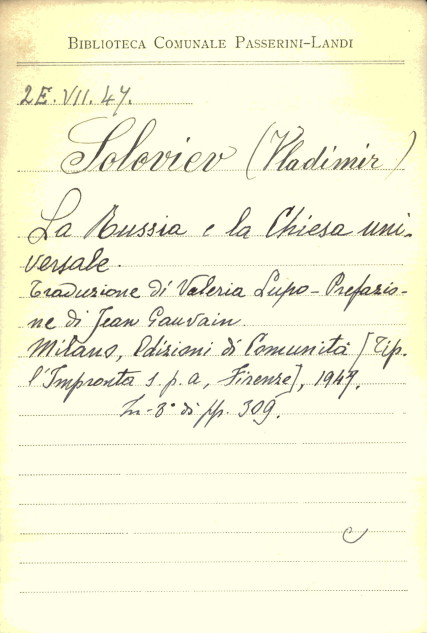 BIBLIOTECA COMUNALE PASSERINI-LANDI
2E.VII.47.
Soloviev (Vladimir)
La Russia e la Chiesa uni-
versale.
Traduzione di Valeria Lupo - Prefazio-
ne di Jean Gauvain.
Milano, Edizioni di Comunità [Tip.
l'Impronta s.p.a, Firenze], 1947.
In-8° di pp. 309.
C